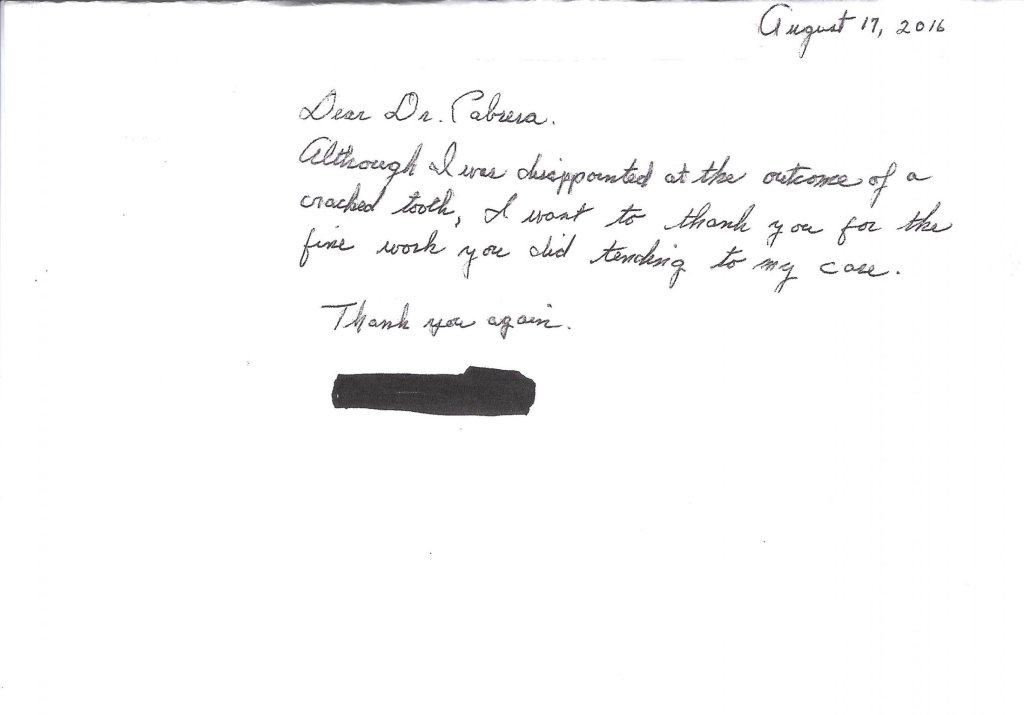 August 17, 2016
Dear Dr. Cabrera.
Although I was disappointed at the outcome of a
cracked tooth, I want to thank you for the
fine work you did tending to my case.
Thank you again.